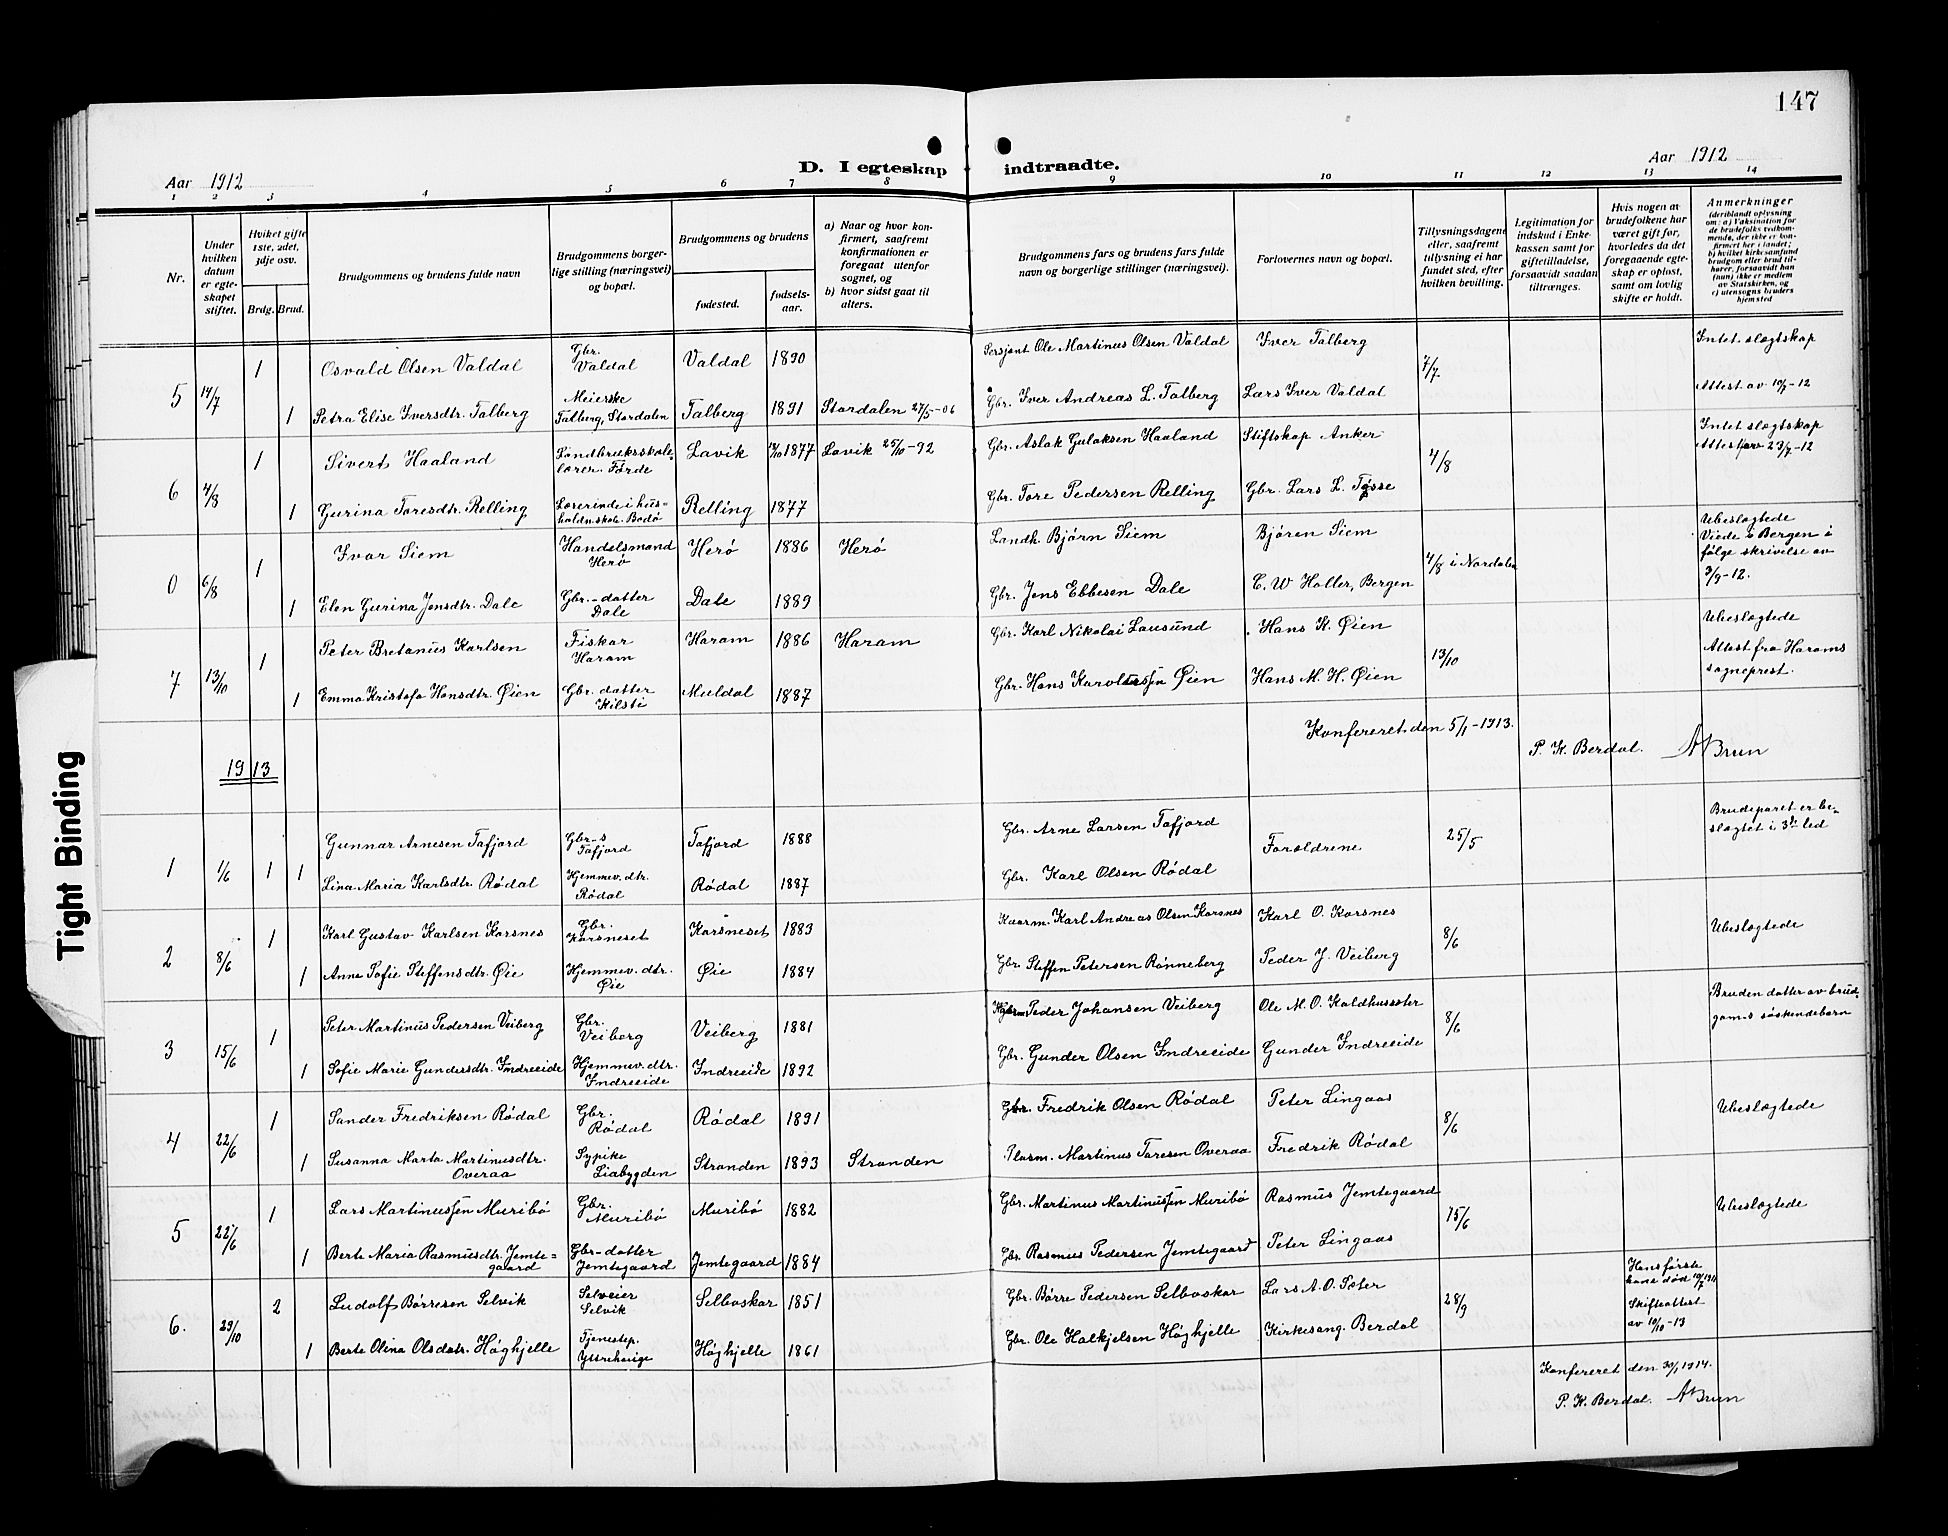 147
D. I egteskap indtraadte.
Aar 1912
Aar 1912
1 2 3 4 5 6 7 8 9 10 11 12 13 14
Nr.
Under hvilken datum er egteskapet stiftet.
Hviket gifte 1ste, 2det, 3dje osv.
Brdg. Brud.
Brudgommens og brudens fulde navn
Brudgommens borgerlige stilling (næringsvei) og bopæl.
Brudgommens og brudens
fødested.
fødselsaar.
a) Naar og hvor konfirmert, saafremt konfirmationen er foregaat utenfor sognet, og
b) hvor sidst gaat til alters.
Brudgommens fars og brudens fars fulde navn og borgerlige stillinger (næringsvei).
Forlovernes navn og bopæl.
Tillysningsdagene eller, saafremt tillysning ei har fundet sted, efter hvilken bevilling.
Legitimation for indskud i Enkekassen samt for giftetilladelse, forsaavidt saadan tiltrænges.
Hvis nogen av brudefolkene har været gift før, hvorledes da det foregaaende egteskap er opløst, samt om lovlig skifte er holdt.
Anmerkninger
(deriblandt oplysning om: a) Vaksination for de brudefolks vedkommende, der ikke er konfirmert her i landet; b) hvilket kirkesamfund brudgom eller brud tilhører, forsaavidt han (hun) ikke er medlem av Statskirken, og c) utensogns bruders hjemsted
5 14/7 1 Osvald Olsen Valdal Gbr. Valdal Valdal 1890 Sersjant Ole Martinus Olsen Valdal Iver Talberg 7/7 Intet slægtskap
1 Petra Elise Iversdtr. Talberg Meierske Talberg, Stordalen Talberg 1891 Stordalen 27/5-06 Gbr. Iver Andreas L. Talberg Lars Iver Valdal Attest av 10/7-12
6 4/8 1 Sivert Haaland Landbruksskolelærer. Førde Lavik 1877 Lavik 25/10-92 Gbr. Aslak Gulaksen Haaland Stiftskap Anker 4/8 Intet slægtskap Attest av 23/7-12
1 Gurina Toresdtr. Relling Lærerinde i husholdn.skole. Bodø Relling 1877 Gbr. Tore Pedersen Relling Gbr. Lars L. Tøsse
0 6/8 1 Ivar Siem Handelsmand Herø Herø 1886 Herø Landh. Bjørn Siem Bjøren Siem 4/8 i Nordalen Ubeslægtede Viede i Bergen i følge skrivelse av 3/9-12.
1 Elen Gurina Jensdtr. Dale Gbr.-datter Dale Dale 1889 Gbr. Jens Ebbesen Dale C. W Holler, Bergen
7 13/10 1 Peter Bretanus Karlsen Fisker Haram Haram 1886 Haram Gbr. Karl Nikolai Lausund Hans K. Øien 13/10 Ubeslægtede
1 Emma Kristofa Hansdtr. Øien Gbr. datter Kilsti Muldal 1887 Gbr. Hans Øien Hans M. H. Øien Attest fra Harams sogneprest.
Konfereret den 5/1-1913.
P. K. Berdal. A Brun
1913
1 1/6 1 1 Gunnar Arnesen Tafjord Gbr-s Tafjord Tafjord 1888 Gbr. Arne Larsen Tafjord Forældrene 25/5 Brudeparet er beslægtet i 3die led
Lina Maria Karlsdtr. Rødal Hjemmev. dtr. Rødal Rødal 1887 Gbr. Karl Olsen Rødal
2 8/6 1 Karl Gustav Karlsen Korsnes Gbr. Korsneset Korsneset 1883 Kaarm. Karl Andreas Olsen Korsnes Karl O. Korsnes 8/6 Ubeslægtede
1 Anne Sofie Steffensdtr. Øie Hjemmev. dtr. Øie Øie 1884 Gbr Steffen Petersen Rønneberg Peder J. Veiberg
3 15/6 1 Peter Martinus Pedersen Veiberg Gbr. Veiberg Veiberg 1881 Peder Johansen Veiberg Ole M. O. Kaldhussæter 8/6 Bruden datter av brudgoms søskendebarn
1 Sofie Marie Gundersdtr. Indreeide Hjemmev. dtr. Indreeide Indreeide 1892 Gbr. Gunder Olsen Indreeide Gunder Indreeide
4 22/6 1 Sander Fredriksen Rødal Gbr. Rødal Rødal 1891 Gbr. Fredrik Olsen Rødal Peter Lingaas 8/6 Ubeslægtede
1 Susanna Marta Martinusdtr. Overaa Sypike Liabygden Stranden 1893 Stranden Plasm. Martinus Toresen Overaa Fredrik Rødal
5 22/6 1 Lars Martinussen Muribø Gbr. Muribø Muribø 1882 Gbr. Martinus Martinussen Muribø Rasmus Jemtegaard 15/6 Ubeslægtede
1 Berte Maria Rasmusdtr. Jemtegaard Gbr-datter Jemtegaard Jemtegaard 1884 Gbr. Rasmus Pedersen Jemtegaard Peter Lingaas
6. 29/10 2 Ludolf Børresen Selvik Selveier Selvik Selboskar 1851 Gbr. Børre Pedersen Selboskar Lars A. O. Peter 28/9 Hans første kone død Skifteattest av 10/10-13
1 Berte Olina Olsdatr. Høghjelle Tjenestep. Yttrehauge Høghjelle 1861 Gbr. Ole Halkjelsen Høghjelle Kirkesang. Berdal
Konfereret den 30/1 1914.
P. K. Berdal. A Brun
Tight Binding